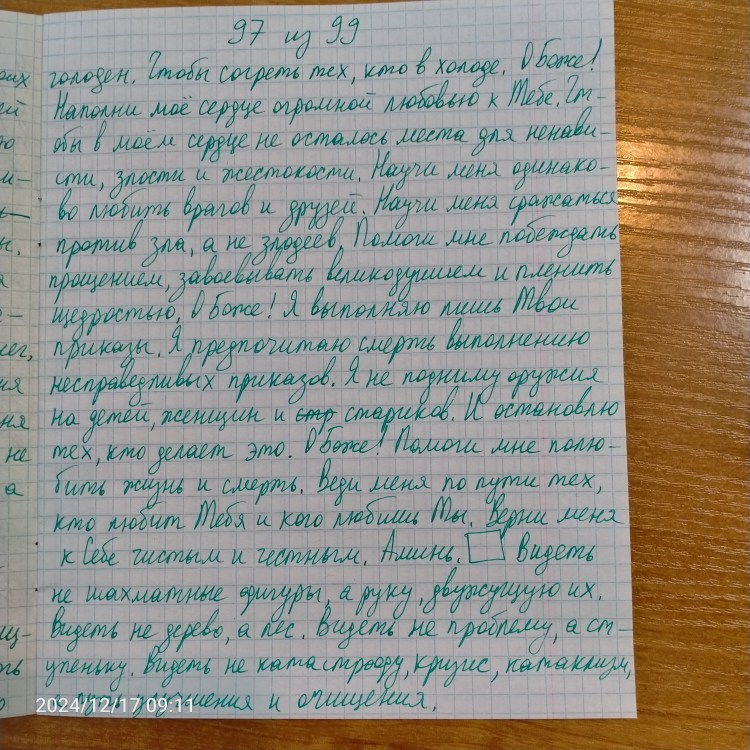 97 из 99
голоден. Чтобы согреть тех, кто в холоде. О Боже!
Наполни моё сердце огромной любовью к Тебе. Чт-
обы в моём сердце не осталось места для ненави-
сти, злости и жестокости. Научи меня одинако-
во любить врагов и друзей. Научи меня сражаться
против зла, а не злодеев. Помоги мне побеждать
прощением, завоевывать великодушием и пленить
щедростью, О Боже! Я выполняю лишь Твои
приказы. Я предпочитаю смерть выполнению
несправедливых приказов. Я не подниму оружия
на детей, женщин и стр стариков. И остановлю
тех, кто делает это. О Боже! Помоги мне полю-
бить жизнь и смерть. Веди меня по пути тех,
кто любит Тебя и кого любишь Ты. Верни меня
к Себе чистым и честным. Аминь. Видеть
не шахматные фигуры, а руку, движущую их.
Видеть не дерево, а лес. Видеть не проблему, а ст-
упеньку. Видеть не катастрофу, кризис, катаклизм,
и очищения.
2024/12/17 09:11